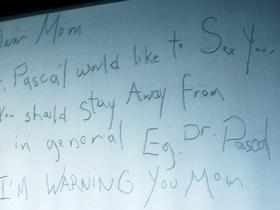 Dear Mom
Pascal would like to Sex you,
You should stay Away from
in general Eg. Dr. Pascal
I'M WARNING YOU MOM